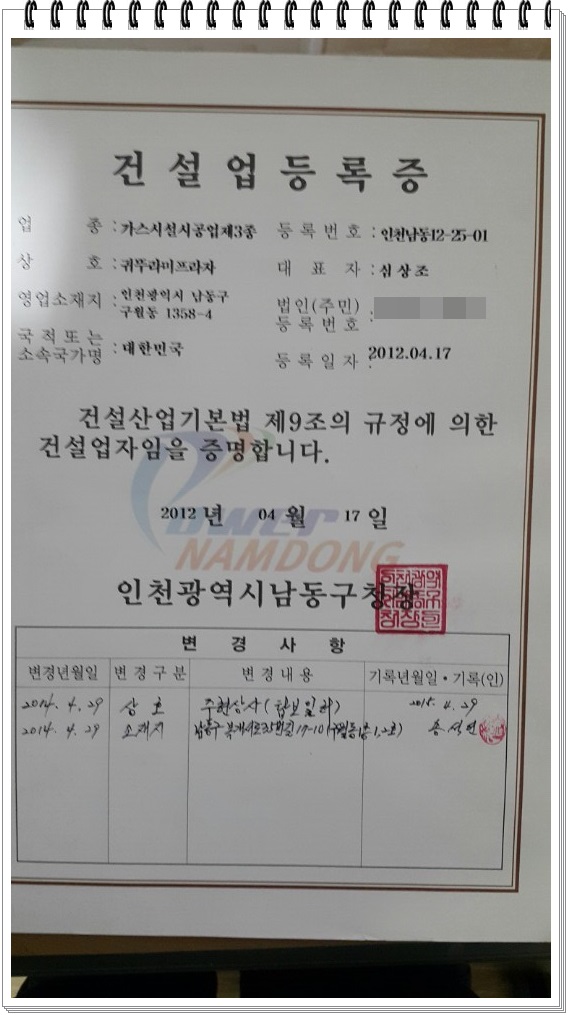 건설업등록증
업 종 : 가스시설시공업제3종 등록번호 : 인천남동12-25-01
상 호 : 귀뚜라미프라자 대 표 자 : 심상조
영업소재지 : 인천광역시 남동구 구월동 1358-4 법인(주민)등록번호 :
국적또는 소속국가명 : 대한민국 등록일자 : 2012.04.17
건설산업기본법 제9조의 규정에 의한
건설업자임을 증명합니다.
2012 년 04 월 17 일
Power
NAMDONG
인천광역시남동구청장
변 경 사 항
변경년월일 변경구분 변경내용 기록년월일·기록(인)
2014. 4. 29 상호 4. 29
2014. 4. 29 소재지 남동구 17-10